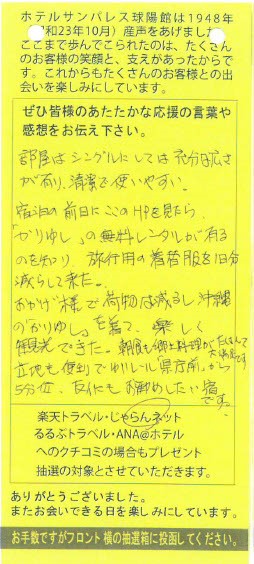 ホテルサンパレス球陽館は1948年
和23年10月）産声をあげました
ここまで歩んでこられたのは、たくさん
のお客様の笑顔と、支えがあったからで
す。これからもたくさんのお客様との出
会いを楽しみにしています。
ぜひ皆様のあたたかな応援の言葉や
感想をお伝え下さい。
部屋はシングルにしては充分な広さ
が有り、清潔で使いやすい。
宿泊の前日にここのHPを見たら、
「かりゆし」の無料レンタルが有る
のを知り、旅行用の着替服を1日分
減らして来た。
おかげ様で荷物は減るし沖縄
の「かりゆし」を着て、楽しく
観光できた。朝食も郷土料理がたくさんで
大満足です
立地も便利でゆいレール「県庁前」から
5分位、友人にもお勧めしたい宿
です。
楽天トラベル・じゃらんネット
るるぶトラベル・ANA@ホテル
へのクチコミの場合もプレゼント
抽選の対象とさせていただきます。
ありがとうございました。
またお会いできる日を楽しみにしています。
お手数ですがフロント横の抽選箱に投函してください。